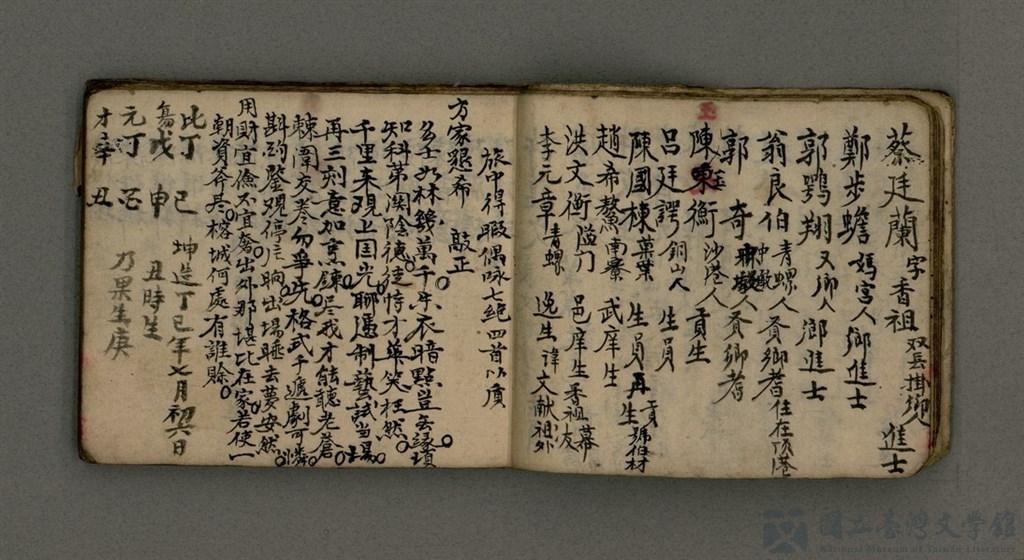 蔡廷蘭字香祖双岳掛坳進士
鄭步蟾媽宮人鄉進士
郭鶚翔又鄉人鄉進士
翁良伯青螺人貢鄉耆住在頂港
郭奇人貢鄉耆
陳衡沙港人貢生
呂廷諤銅山人生員
陳國棟葉葉生員再生貢號伯材
趙希鰲南寮武庠生
洪文衡隘门邑庠生秀祖幕友
李元章青螺逸生諱文献祖外
旅中得暇偶咏七絕四首以質
方家懇希敲正
多士如林幾萬千朱衣暗點豈去緣項
知科苐関陰德徒恃才華笑枉然
千里來观上囯光聊遇制藝試当場
再三刻意加烹錬尽我才能聽老蒼
棘圍交卷勿爭先格式千遞劇可憐
斟酌鑒跳停三晌出場睡去夢安然
用財宜儉不宜奢出外那堪比在家若使一
朝資斧尽榕城何處有誰賒
坤造丁巳年七月初六日
丑時生
乃果生庚
比丁巳
傷戊申
元丁
才辛丑
國立臺灣文學館
National Museum of Taiwan Literature